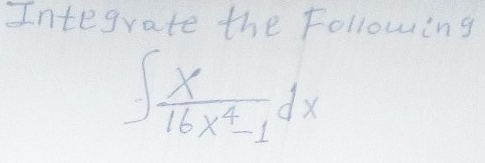 Integrate the Following
∫ x/(16x⁴-1) dx